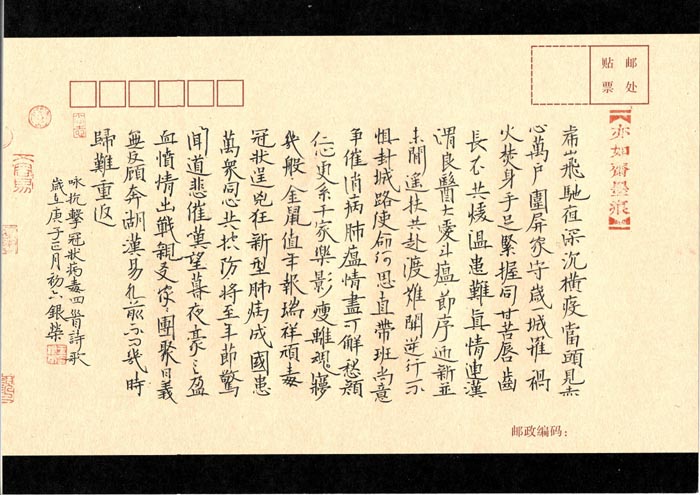 贴邮
票处
【亦如齋墨痕】
飛馳夜深沉橫疫當頭見赤
心萬戶圍屏家守歲一城罹禍
火焚身手足緊握同甘苦唇齒
長不共煖溫患難真情連漢
渭良醫大愛斗瘟節序迎新並
未閒遙扶共赴渡難關逆行不
惧封城路使命何思直帶班尚意
争催消病肺瘟情盡可解愁顏
仁心更系千家樂影瘦難寢
幾般金鼠值年報瑞祥頑毒
冠狀逞兇狂新型肺病成國患
萬衆同心共抗防將至年節驚
聞道悲催漢望幕夜豪之盈
血憤情出戰親友家團聚日義
無反顧奔湖漢易水前不幾時
歸難重返
咏抗擊冠狀病毒四首詩歌
歲在庚子正月初六銀柴
邮政编码：